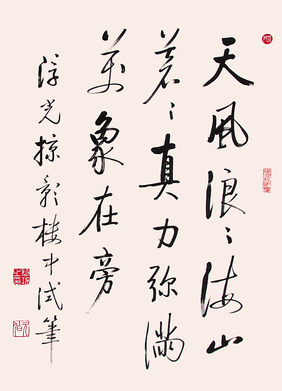 天風浪浪海山
蒼蒼真力弥滿
萬象在旁
浮光掠影樓中試筆